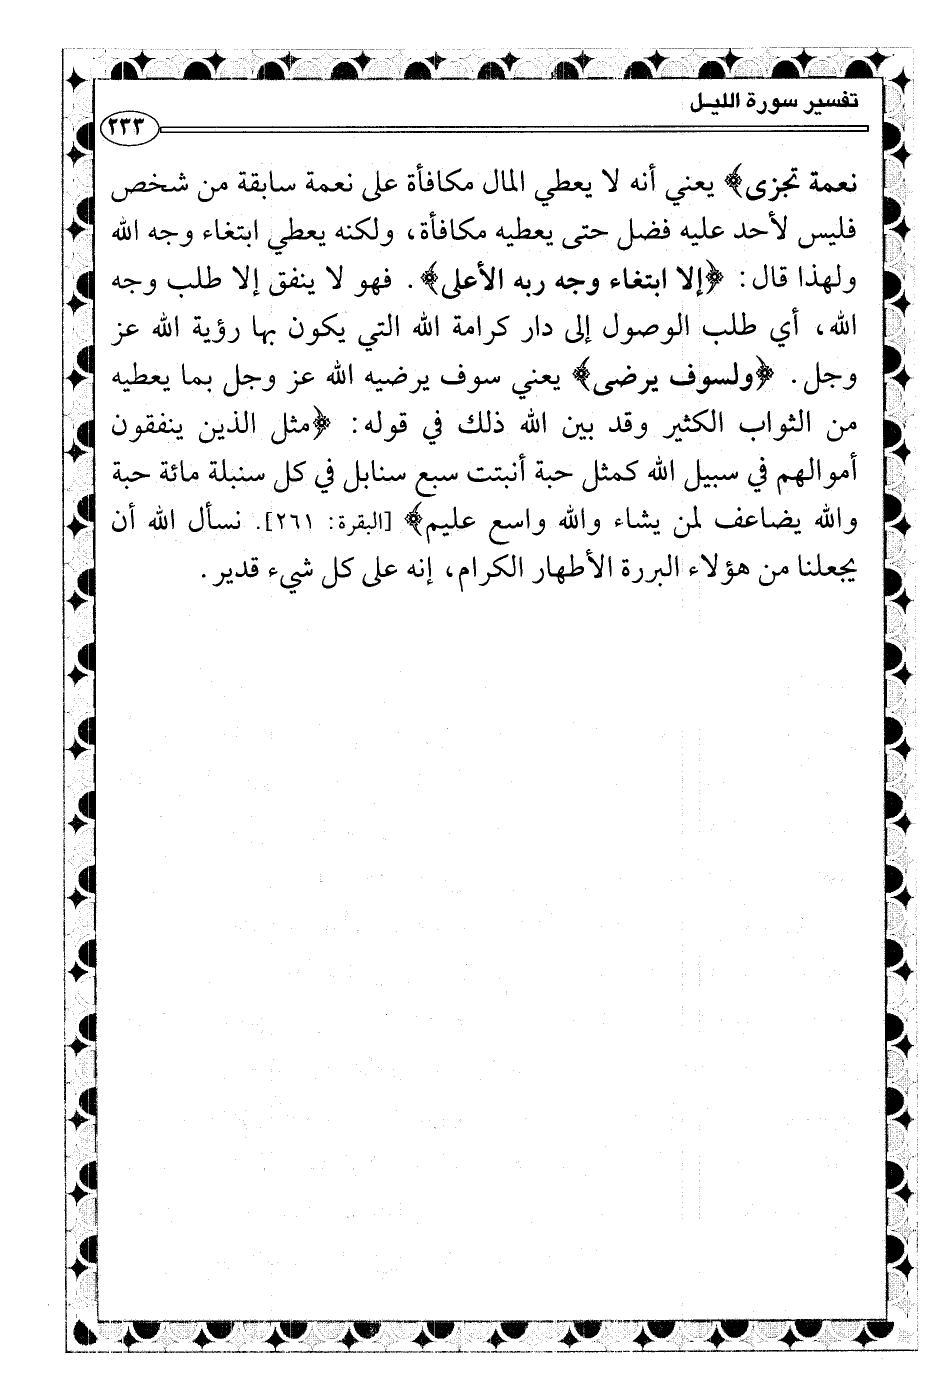 تفسير سورة الليـل
٢٣٣
نعمة تجزى﴾ يعني أنه لا يعطي المال مكافأة على نعمة سابقة من شخص
فليس لأحد عليه فضل حتى يعطيه مكافأة، ولكنه يعطي ابتغاء وجه الله
ولهذا قال: ﴿إلا ابتغاء وجه ربه الأعلى﴾. فهو لا ينفق إلا طلب وجه
الله، أي طلب الوصول إلى دار كرامة الله التي يكون بها رؤية الله عز
وجل. ﴿ولسوف يرضى﴾ يعني سوف يرضيه الله عز وجل بما يعطيه
من الثواب الكثير وقد بين الله ذلك في قوله: ﴿مثل الذين ينفقون
أموالهم في سبيل الله كمثل حبة أنبتت سبع سنابل في كل سنبلة مائة حبة
والله يضاعف لمن يشاء والله واسع عليم﴾ [البقرة: ٢٦١]. نسأل الله أن
يجعلنا من هؤلاء البررة الأطهار الكرام، إنه على كل شيء قدير.